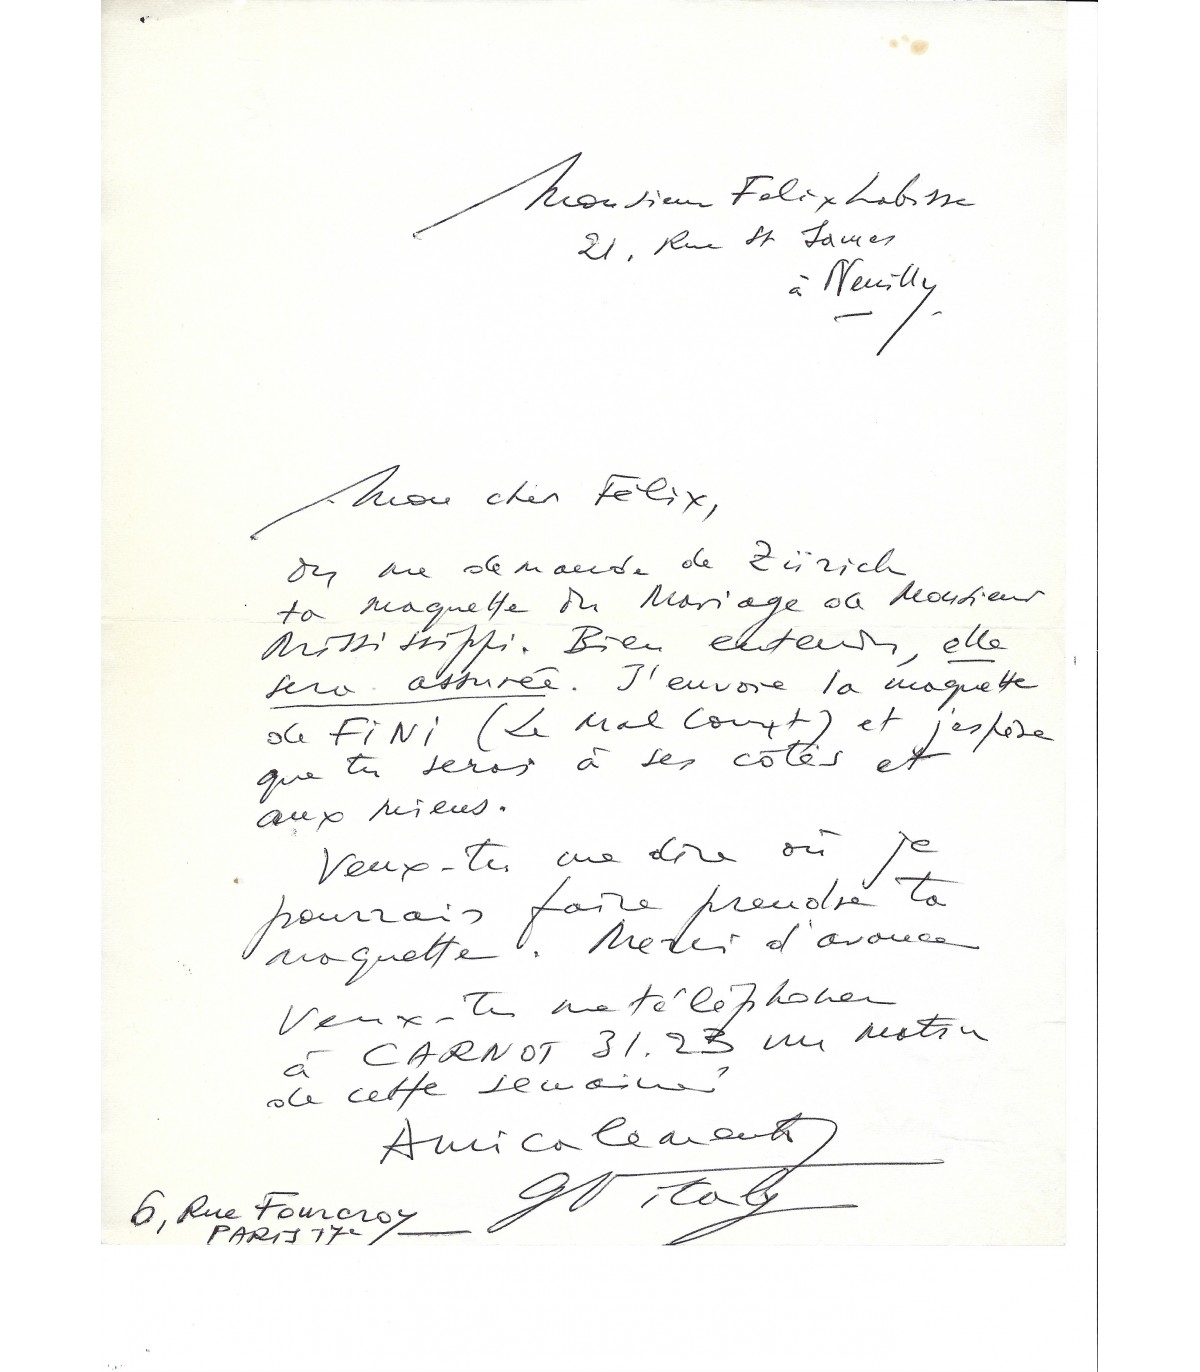 Monsieur Felix Labisse
21, Rue St James
à Neuilly
Mon cher Félix,
On me demande de Zürich
ta maquette du Mariage de Monsieur
Mississippi. Bien entendu, elle
sera assurée. J'envoie la maquette
de FINI (Le Mal Court) et j'espère
que tu seras à ses côtés et
aux miens.
Veux-tu me dire où je
pourrais faire prendre ta
maquette. Merci d'avance
Veux-tu me téléphoner
à CARNOT 31.23 un matin
de cette semaine?
Amicalement
G Vitaly
6, Rue Fourcroy
PARIS 17e